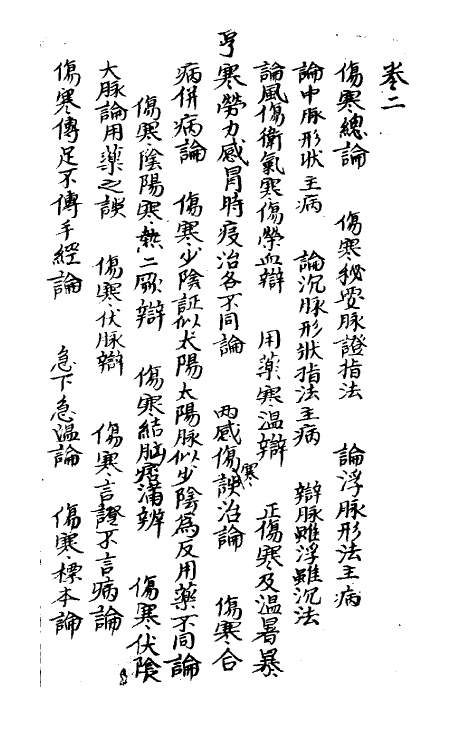 卷二
傷寒總論　傷寒秘要脉證指法　論浮脉形法主病
論中脉形狀主病　論沉脉形狀指法主病　辯脉雖浮雖沉法
論風傷衛氣寒傷榮血辯　用薬寒温辯　正傷寒及温暑暴
寒勞力感冐時疫治各不同論　兩感傷寒誤治論　傷寒合
病併病論　傷寒少陰証似太陽太陽脉似少陰為反用薬不同論
傷寒陰陽寒熱二厥辯　傷寒結胸痞滿辨　傷寒伏陰
大脉論用薬之誤　傷寒伏脉辯　傷寒言證不言病論
傷寒傳足不傳手經論　急下急温論　傷寒標本論